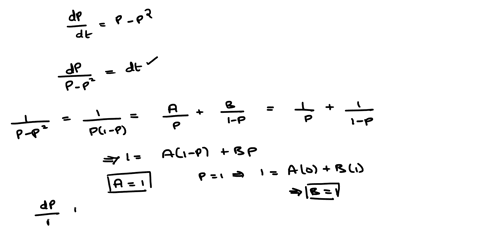 dP/dt = P - P²
dP/P-P² = dt ✓
1/P-P² = 1/P(1-P) = A/P + B/1-P = 1/P + 1/1-P
⇒ 1 = A(1-P) + BP
A = 1 P=1 ⇒ 1 = A(0) + B(1)
⇒ B = 1
dP/1